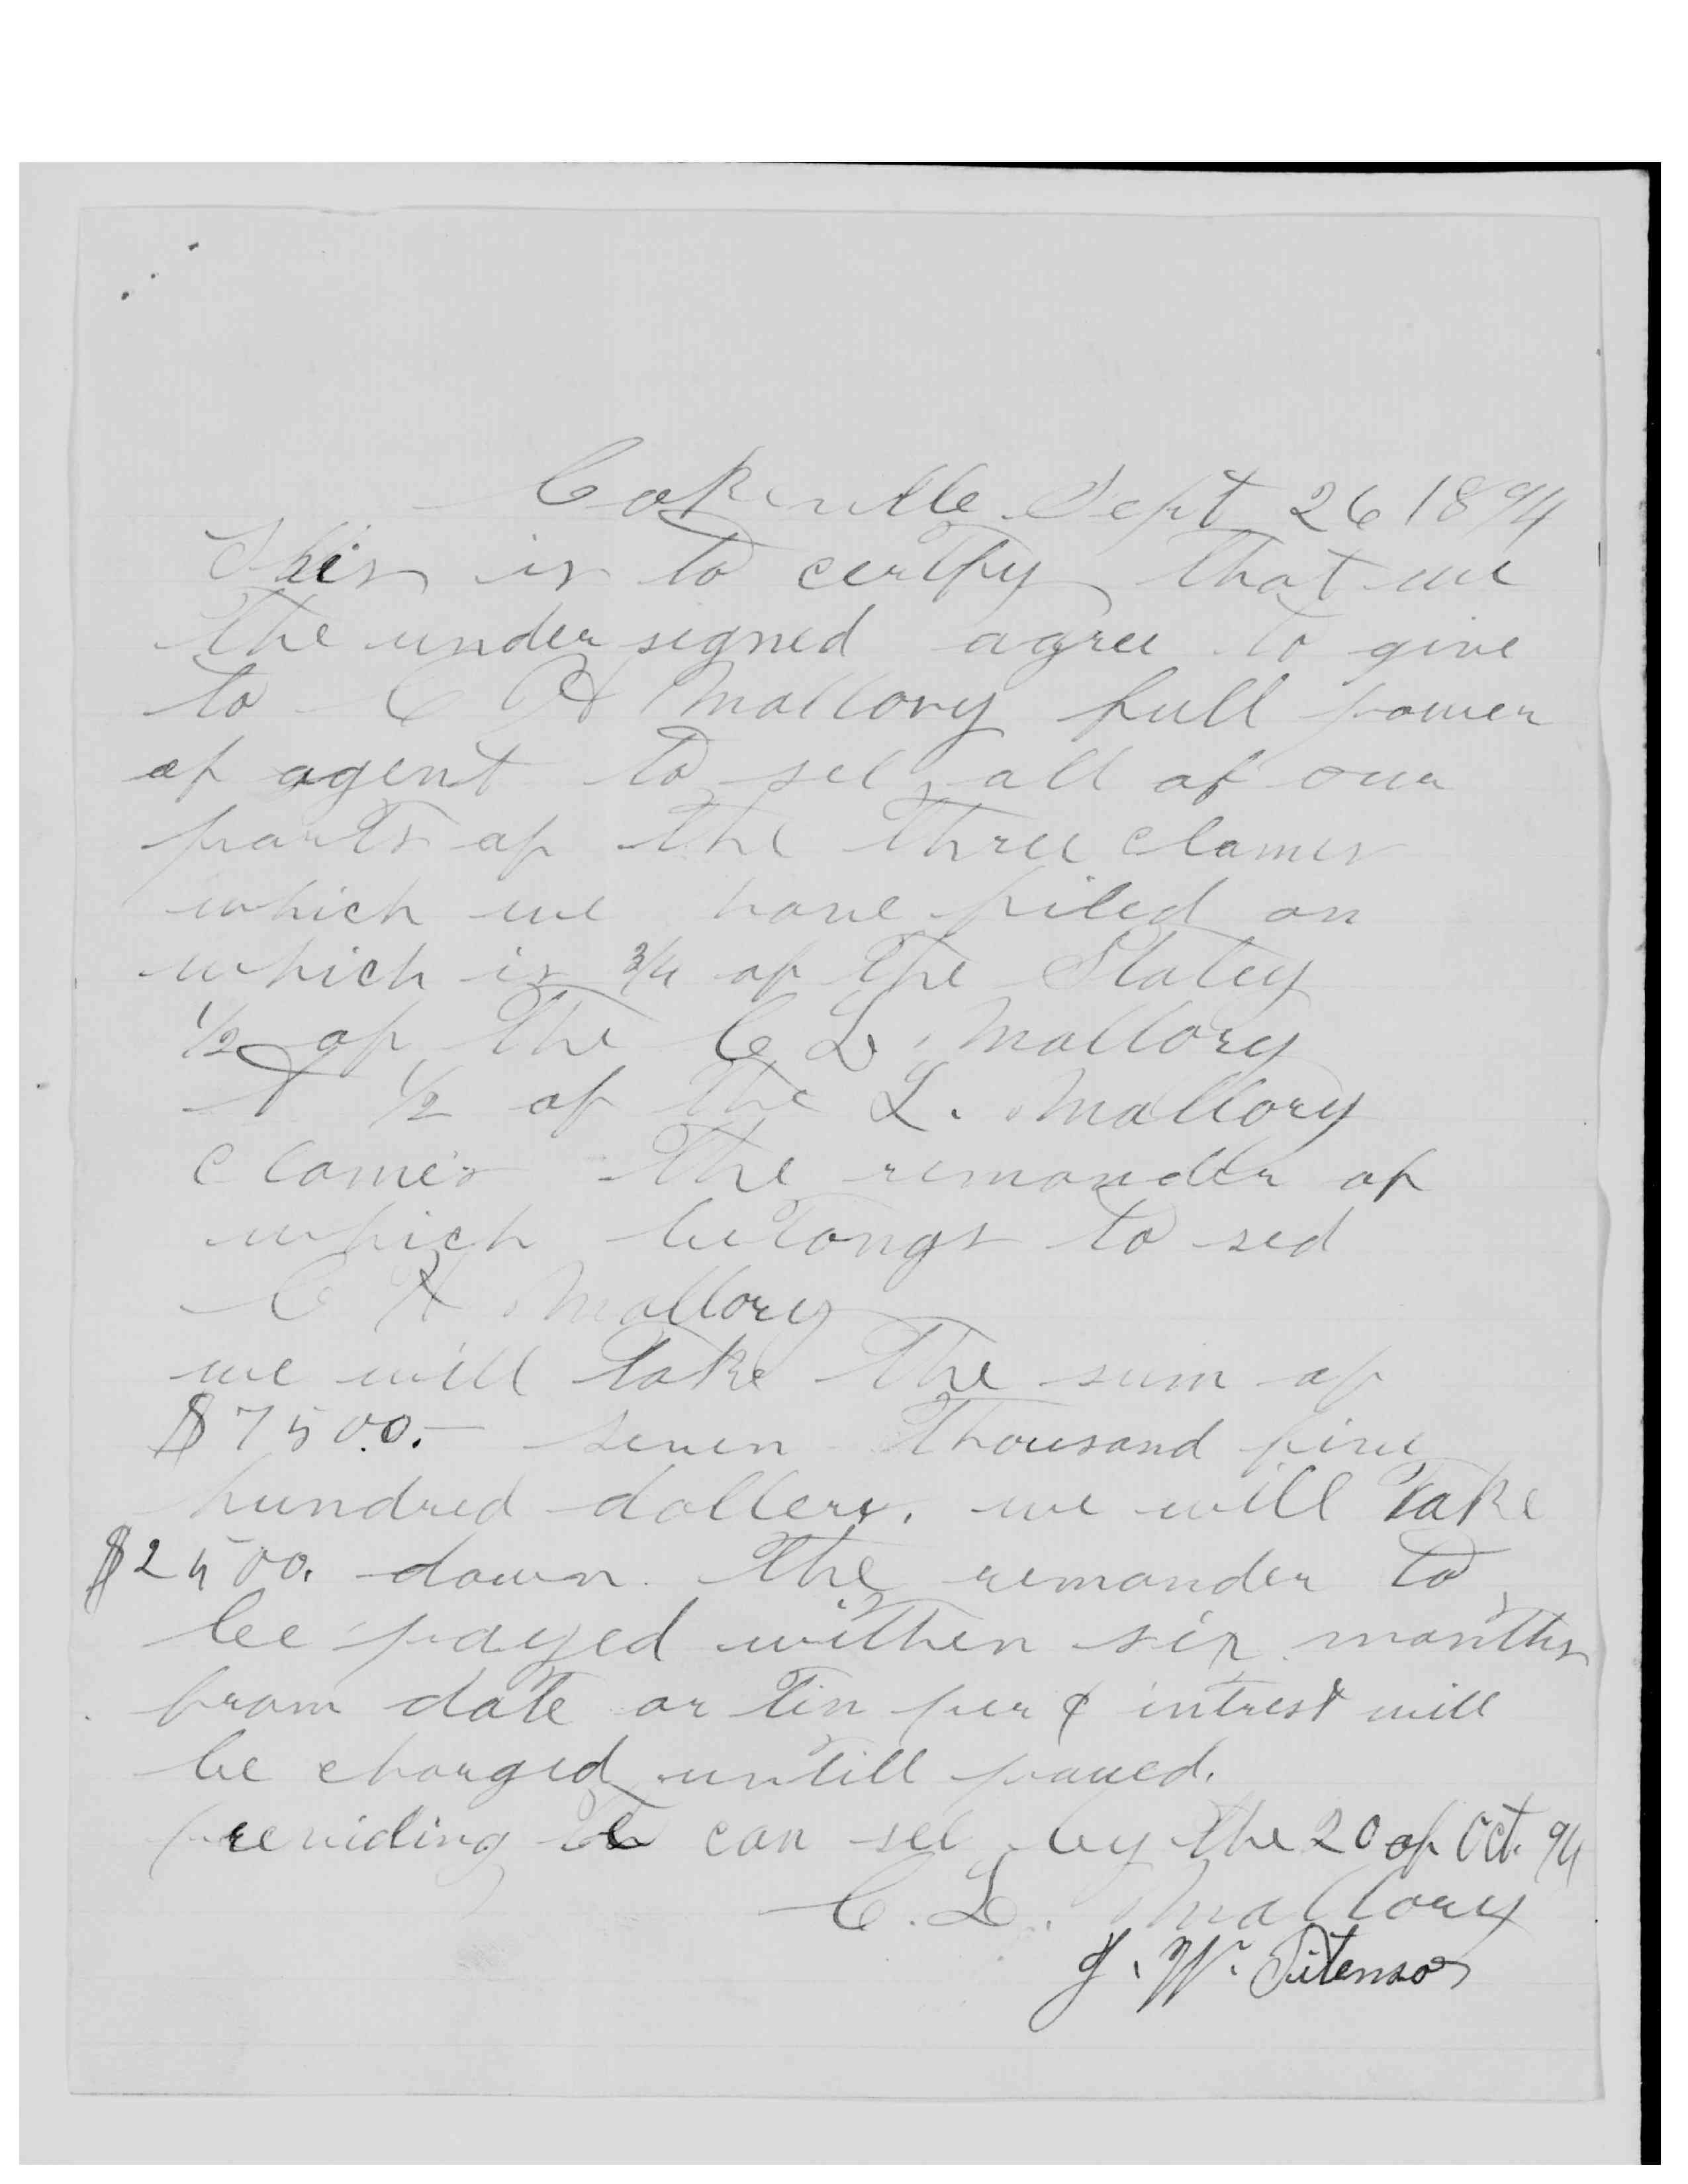 Cokeville Sept 26 1894
This is to certfy that we
the under signed agree to give
to C H Mallory full power
of agent to sel all of our
parts of the three clames
which we have filed on
which is 3/4 of the Slatey
1/2 of the C L. Mallory
& 1/2 of the L. Mallory
clames the remander of
which belongs to sed
C H Mallory
we will take the sum of
$7500.- seven thousand five
hundred dollers. we will take
$2500. down. the remander to
be payed within six months
from date or tin per ¢ intrest will
be charged untill payed.
preoviding he can sel by the 20 of Oct. 94
C. L. Mallory
J. W. Titenson